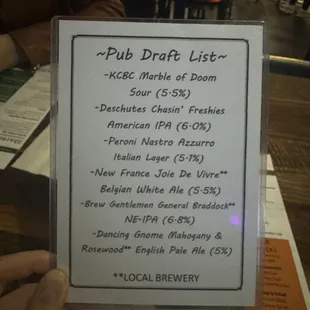 ~Pub Draft List~
-KCBC Marble of Doom
Sour (5.5%)
-Deschutes Chasin' Freshies
American IPA (6.0%)
-Peroni Nastro Azzurro
Italian Lager (5.1%)
-New France Joie De Vivre**
Belgian White Ale (5.5%)
-Brew Gentlemen General Braddock**
NE-IPA (6.8%)
-Dancing Gnome Mahogany &
Rosewood** English Pale Ale (5%)
**LOCAL BREWERY